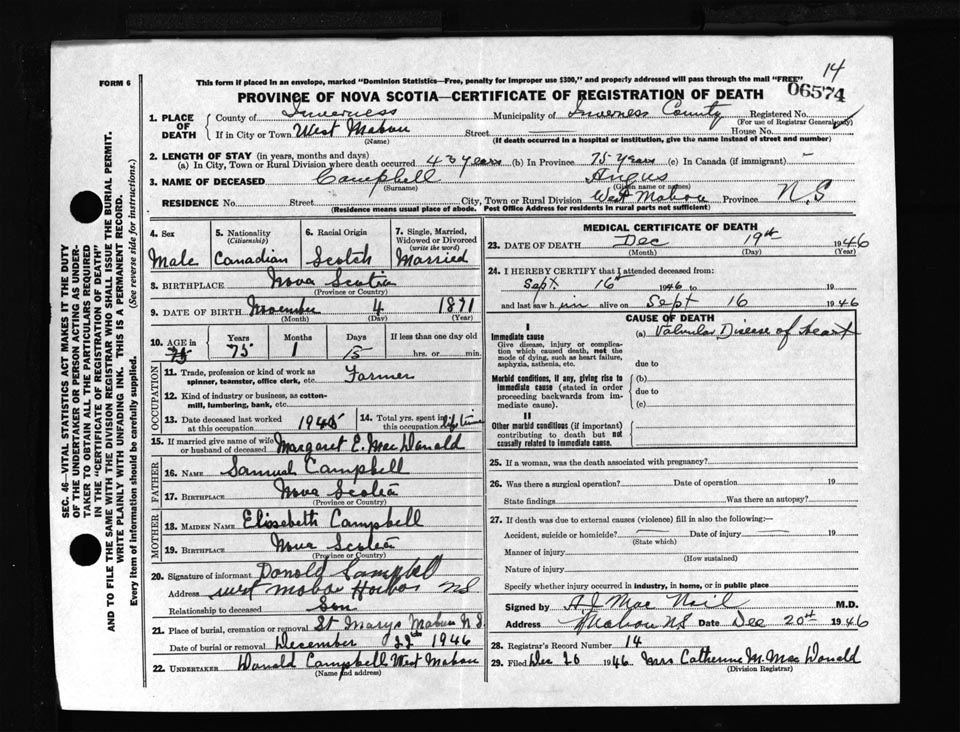 14
FORM 6
This form if placed in an envelope, marked "Dominion Statistics—Free, penalty for improper use $300," and properly addressed will pass through the mail "FREE"
06574
PROVINCE OF NOVA SCOTIA—CERTIFICATE OF REGISTRATION OF DEATH
1. PLACE OF DEATH
County of Inverness Municipality of Inverness County Registered No.
(For use of Registrar General only)
If in City or Town West Mabou Street House No.
(Name) (If death occurred in a hospital or institution, give the name instead of street and number)
2. LENGTH OF STAY (in years, months and days)
(a) In City, Town or Rural Division where death occurred 43 years (b) In Province 75 years (c) In Canada (if immigrant) -
3. NAME OF DECEASED Campbell Angus
(Surname) (Given name or names)
RESIDENCE No. Street City, Town or Rural Division West Mabou Province N.S
(Residence means usual place of abode. Post Office Address for residents in rural parts not sufficient)
4. Sex 5. Nationality 6. Racial Origin 7. Single, Married,
(Citizenship) Widowed or Divorced
(write the word)
Male Canadian Scotch Married
8. BIRTHPLACE Nova Scotia
(Province or Country)
9. DATE OF BIRTH November 4 1871
(Month) (Day) (Year)
10. AGE in Years Months Days If less than one day old
75 75 1 15 hrs. or min.
OCCUPATION
11. Trade, profession or kind of work as
spinner, teamster, office clerk, etc. Farmer
12. Kind of industry or business, as cotton-
mill, lumbering, bank, etc.
13. Date deceased last worked
at this occupation 1945
14. Total yrs. spent in
this occupation life time
15. If married give name of wife
or husband of deceased Margaret E. Mac Donald
FATHER
16. NAME Samual Campbell
17. BIRTHPLACE Nova Scotia
(Province or Country)
MOTHER
18. MAIDEN NAME Elissebeth Campbell
19. BIRTHPLACE Nova Scotia
(Province or Country)
20. Signature of informant Donald Campbell
Address west mabou Harbor NS
Relationship to deceased Son
21. Place of burial, cremation or removal St Marys Mabou N.S
Date of burial or removal December 22th 1946
22. UNDERTAKER Donald Campbell West Mabou
(Name and address)
MEDICAL CERTIFICATE OF DEATH
23. DATE OF DEATH Dec 19th 1946
(Month) (Day) (Year)
24. I HEREBY CERTIFY that I attended deceased from:
Sept. 16th 1946 to 19
and last saw him alive on Sept 16 1946
CAUSE OF DEATH
I
Immediate cause (a) Valvular Disease of heart
Give disease, injury or complica-
tion which caused death, not the
mode of dying, such as heart failure,
asphyxia, asthenia, etc. due to
Morbid conditions, if any, giving rise to (b)
immediate cause (stated in order due to
proceeding backwards from im-
mediate cause). (c)
II
Other morbid conditions (if important)
contributing to death but not
causally related to immediate cause.
25. If a woman, was the death associated with pregnancy?
26. Was there a surgical operation? Date of operation 19
State findings Was there an autopsy?
27. If death was due to external causes (violence) fill in also the following:—
Accident, suicide or homicide? Date of injury 19
(State which)
Manner of injury
(How sustained)
Nature of injury
Specify whether injury occurred in industry, in home, or in public place
Signed by A.J. Mac Neil M.D.
Address Mabou NS Date Dec 20th 1946
28. Registrar's Record Number 14
29. Filed Dec 20 1946 Mrs Catherine M. Mac Donald
(Division Registrar)
SEC. 46—VITAL STATISTICS ACT MAKES IT THE DUTY
OF THE UNDERTAKER OR PERSON ACTING AS UNDER-
TAKER TO OBTAIN ALL THE PARTICULARS REQUIRED
IN THE "CERTIFICATE OF REGISTRATION OF DEATH"
AND TO FILE THE SAME WITH THE DIVISION REGISTRAR WHO SHALL ISSUE THE BURIAL PERMIT.
WRITE PLAINLY WITH UNFADING INK. THIS IS A PERMANENT RECORD.
Every item of information should be carefully supplied. (See reverse side for instructions.)